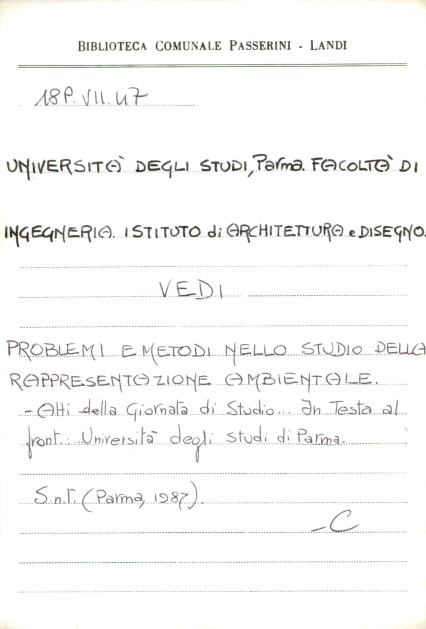 BIBLIOTECA COMUNALE PASSERINI - LANDI
18P.VII.47
UNIVERSITÀ DEGLI STUDI, Parma. FACOLTÀ DI
INGEGNERIA. ISTITUTO di ARCHITETTURA e DISEGNO.
VEDI
PROBLEMI E METODI NELLO STUDIO DELLA
RAPPRESENTAZIONE AMBIENTALE.
- Atti della Giornata di Studio... In Testa al
front.: Università degli studi di Parma.
S.n.t. (Parma, 1987).
- C